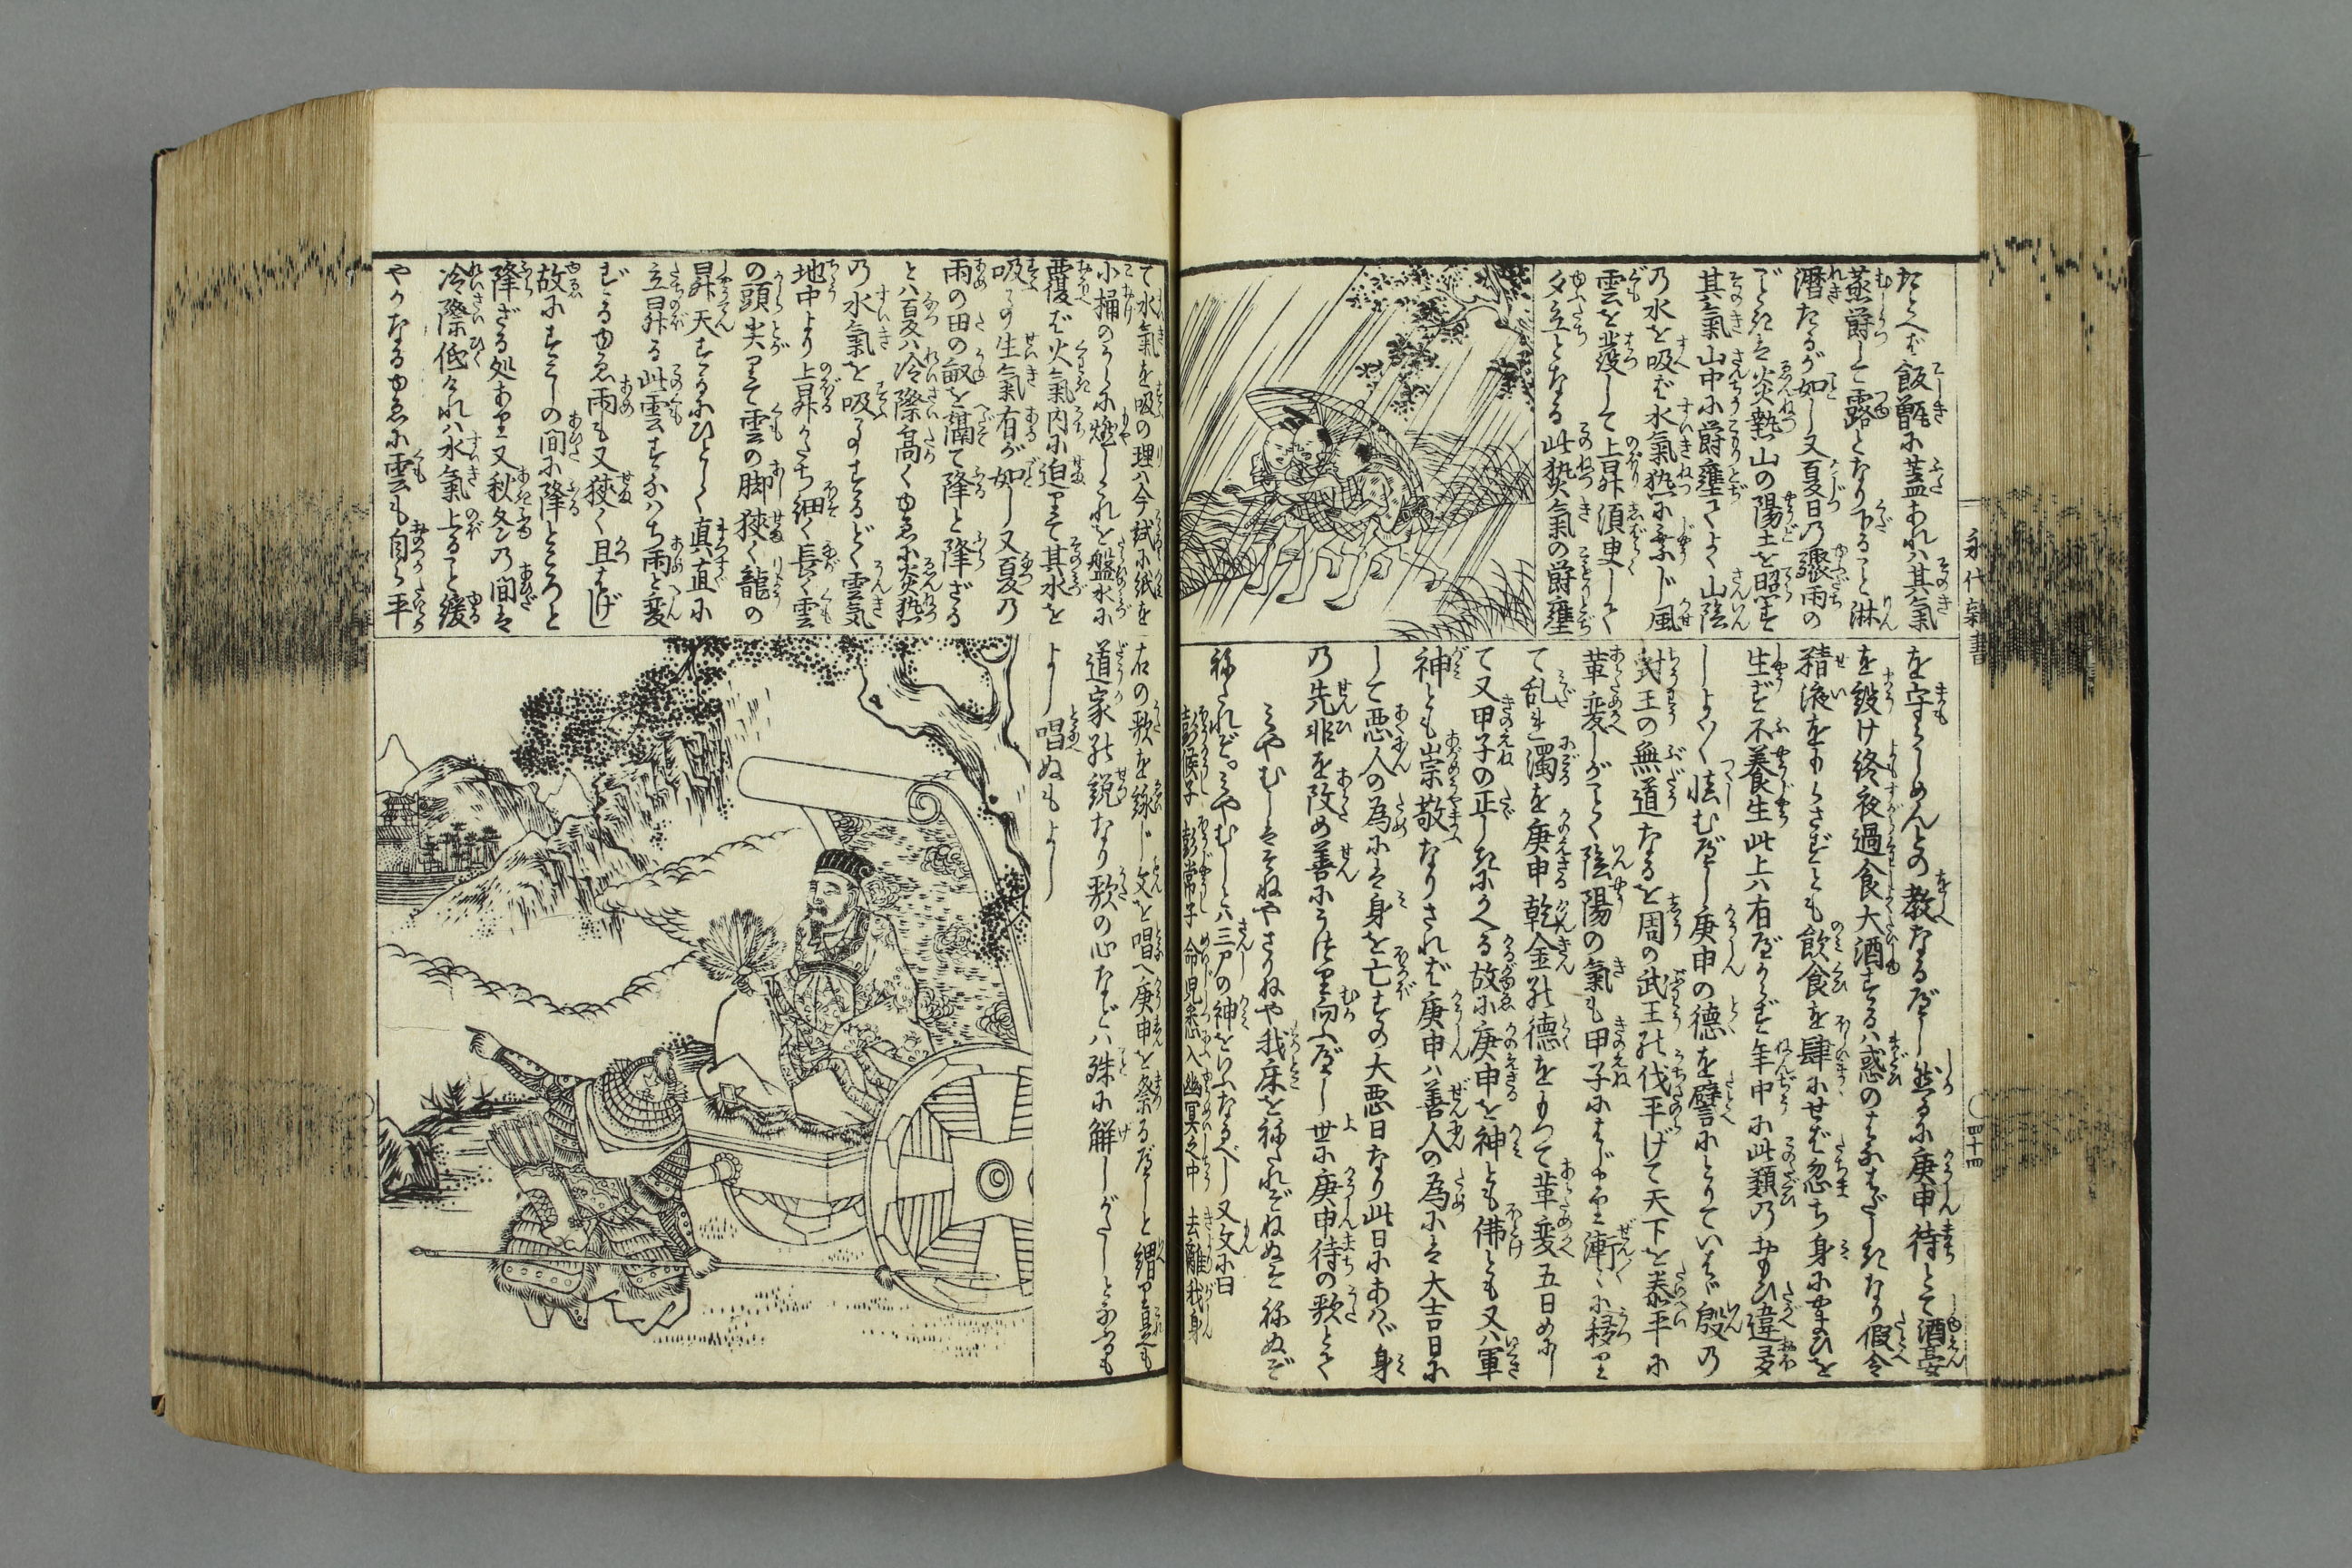 永代雑書
〇四十四
たとへバ飯甑に蓋あれバ其氣
蒸欝して露となり下ること淋
瀝たるが如し又夏日の驟雨の
ごときハ炎熱山の陽土を照すを
其氣山中に欝壅してよく山陰
の水を吸バ水氣熱に乗じ風
雲を発して上昇須臾しく
夕立となる此熱氣の欝壅
を守らしめんとの教なるべし然るに庚申待とて酒宴
を設け終夜過食大酒するハ惑のはなはだしきなり假令
精液をもらさずとも飲食を肆にせバ忽ち身にやまひを
生ず不養生此上ハ有べからず年中に此類のおもひ違多
しよく〱慎むべし庚申の德を譬にとりていはゞ殷の
紂王の無道なるを周の武王の伐平げて天下を泰平に
革変しがごとく陰陽の氣も甲子にはじまり漸〻に移りて
て乱れ濁を庚申乾金の德をもつて革変五日めにし
て又甲子の正しきにかへる故に庚申を神とも佛とも又ハ軍
神とも崇敬なりされバ庚申ハ善人の為にハ大吉日に
して悪人の為にハ身を亡すの大悪日なり此日にあハゞ身
の先非を改め善にうつり向ふべし世に庚申待の歌とて
しやむしハいねやさりねや我床をねたれどねぬぞねぬど
ねたれど。しやむしとハ三尸の神をいふなるべし又文に曰
彭候子 彭常子 命児子 悉入幽冥之中 去離我身
て水氣を吸の理ハ今試に紙を
小桶のうちに燃しこれを盤水に
覆へバ火氣内に迫りて其水を
吸ふの生氣有が如し又夏の
雨の田の畝を隔て降と降ざる
とハ百夏ハ冷際高くゆゑに炎熱
の水氣を吸ふのするどく雲気
地中より上昇かたち細く長く雲
の頭尖りて雲の脚狭く龍の
昇天するにひとしく真直に
立昇る此雲すなハち雨と変
ずるゆゑ雨も又狭く且はげし
故にすこしの間に降ところと
降ざる処あり又秋冬の間ハ
冷際低けれバ水氣上ること緩
やかなるゆゑに雲も自ら平
右の歌を詠じ文を唱へ庚申を祭るべしと謂り是も
道家の説なり歌の心などハ殊に解しがたしとなふるも
よし唱ぬもよし